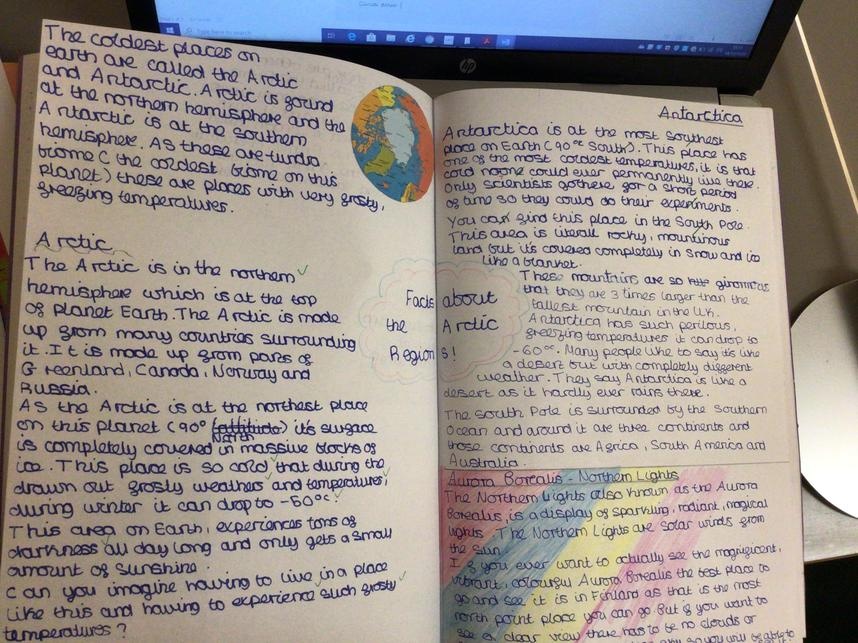 The coldest places on
earth are called the Arctic
and Antarctic. Arctic is found
at the northern hemisphere and the
Antarctic is at the southern
hemisphere. As these are tundra
biome (the coldest biome on this
planet) these are places with very frosty,
freezing temperatures.
Arctic
The Arctic is in the northern
hemisphere which is at the top
of planet Earth. The Arctic is made
up from many countries surrounding
it. It is made up from parts of
Greenland, Canada, Norway and
Russia.
As the Arctic is at the northest place
on this planet (90° North) it's surface
is completely covered in massive blocks of
ice. This place is so cold that during the
drawn out frosty weathers and temperatures,
during winter it can drop to -50°c.
This area on Earth, experiences tons of
darkness all day long and only gets a small
amount of sunshine.
Can you imagine having to live in a place
like this and having to experience such frosty
temperatures?
Facts about
the Arctic
Regions!
Antarctica
Antarctica is at the most southest
place on Earth (90° South). This place has
one of the most coldest temperatures, it is that
cold no one could ever permanently live there.
Only scientists go there for a short period
of time so they could do their experiments.
You can find this place in the South Pole.
This area is literall rocky, mountinous
land but it's covered completely in snow and ice
like a blanket.
These mountains are so
that they are 3 times larger than the
tallest mountain in the U.K.
Antarctica has such perilous,
freezing temperatures it can drop to
-60°c. Many people like to say it's like
a desert but with completely different
weather. They say Antarctica is like a
desert as it hardly ever rains there.
The South Pole is surrounded by the Southern
Ocean and around it are three continents and
those continents are Africa, South America and
Australia.
Aurora Borealis - Northern Lights
The Northern Lights also known as the Aurora
Borealis, is a display of sparkling, radiant, magical
lights. The Northern Lights are solar winds from
the sun.
If you ever want to actually see the magnificent,
vibrant, colourful Aurora Borealis the best place to
go and see it is in Finland as that is the most
north point place you can go. But if you want to
see a clear view there has to be no clouds or
hp